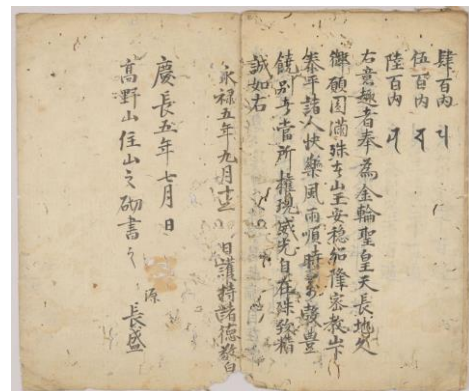 肆百内
伍百内
陸百内
右意趣者奉為金輪聖皇天長地久
御願圓満殊者山王安穏紹隆密教山下
泰平諸人快樂風雨順時五穀豊
饒別者當所権現威光自在殊致精
誠如右
永禄五年九月十三日護持諸徳敬白
慶長五年七月日
高野山住山之砌書之
源
長盛